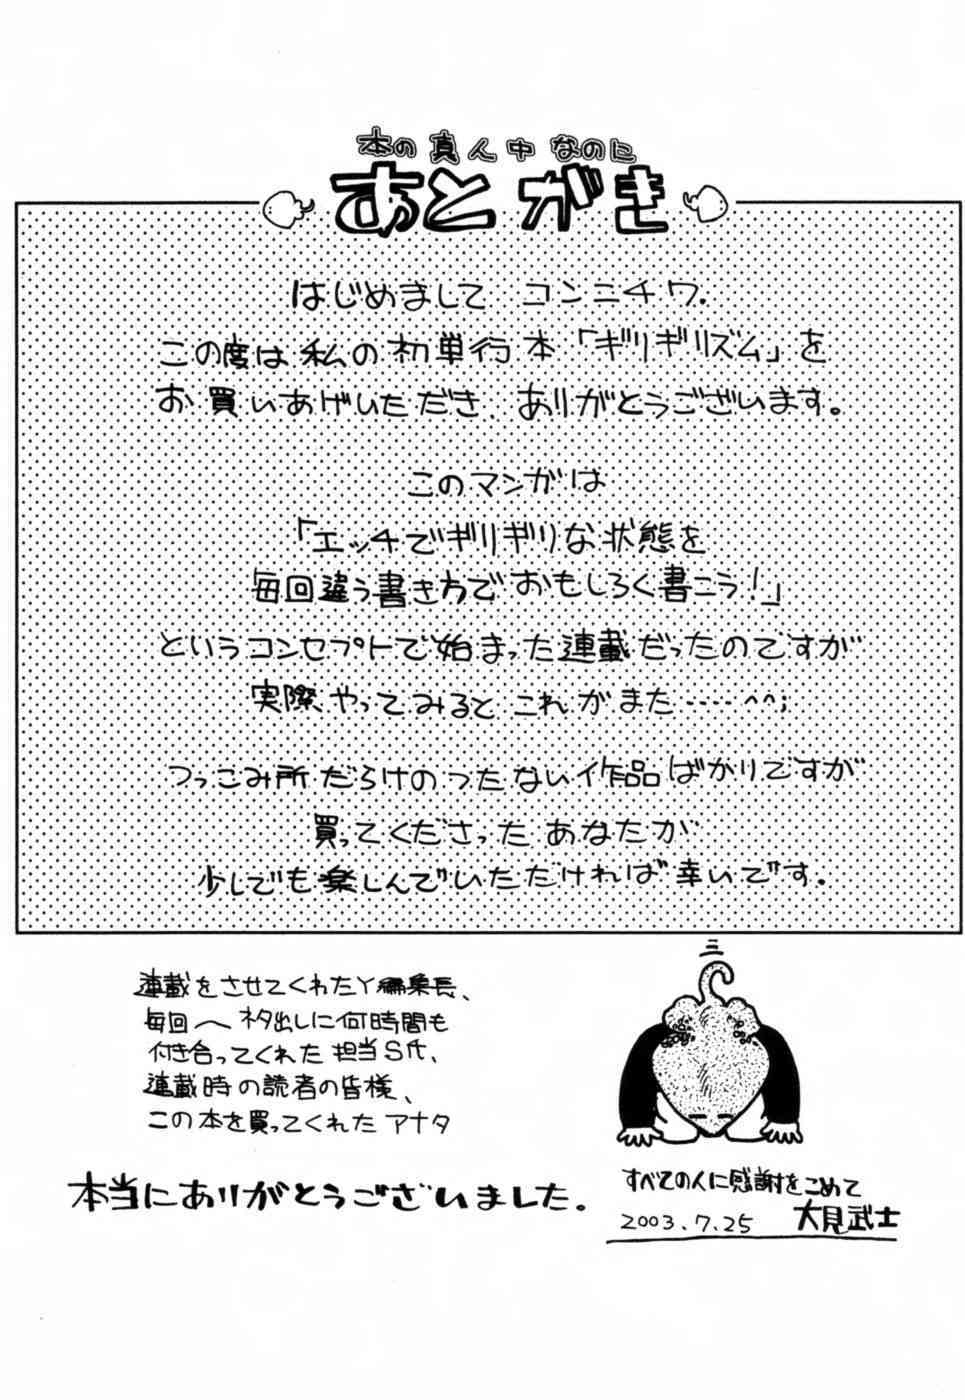 本の真ん中なのに
あとがき
はじめまして コンニチワ.
この度は私の初単行本「ギリギリズム」を
お買いあげいただき、ありがとうございます。
このマンガは
「エッチでギリギリな状態を
毎回違う書き方でおもしろく書こう！」
というコンセプトで始まった連載だったのですが
実際やってみると これがまた‥‥^^;
つっこみ所だらけのつたない作品ばかりですが
買ってくださった あなたが
少しでも楽しんでいただければ幸いです.
連載をさせてくれたY編集長、
毎回〜ネタ出しに何時間も
付き合ってくれた担当S氏、
連載時の読者の皆様、
この本を買ってくれたアナタ
本当にありがとうございました。
すべての人に感謝をこめて
2003.7.25 大見武士